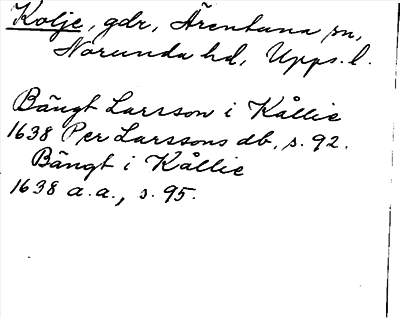 Kolje, gdr, Ärentuna sn,
Norunda hd, Upps. l.
Bängt Larsson i Kållie
1638 Per Larssons db. s. 92.
Bängt i Kållie
1638 a.a., s. 95.